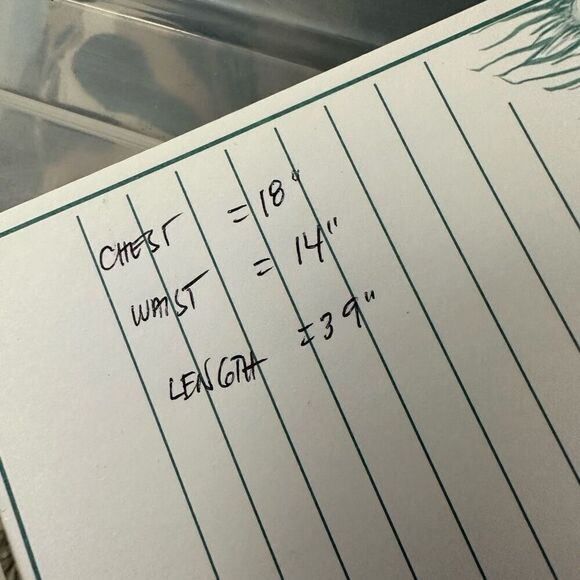 CHEST = 18"
WAIST = 14"
LENGTH = 39"